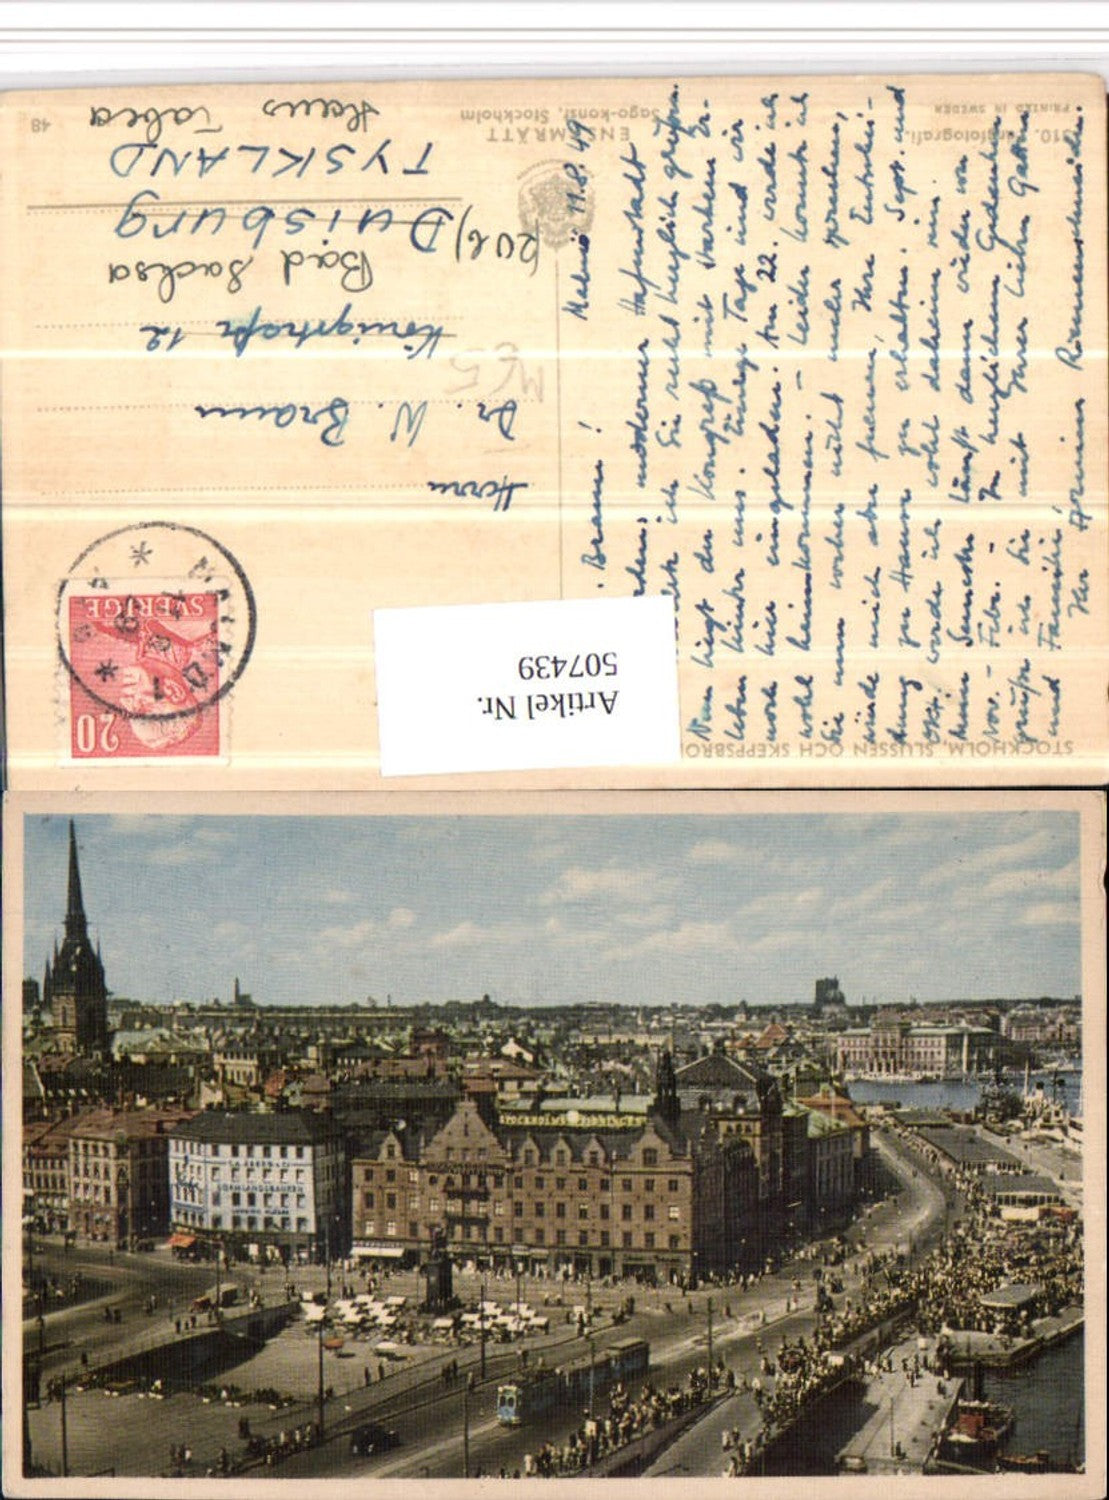 STOCKHOLM, SLUSSEN OCH SKEPPSBRO
Malmö 11.8.49
Braun!
moderner Hafenstadt
ich Sie recht herzlich grüßen.
Nun liegt der Kongreß mit starkem Er-
leben hinter uns. Einige Tage sind wir
noch hier eingeladen. Am 22. werde ich
wohl heimkommen. – Leider konnte ich
Sie nun vorher nicht mehr sprechen,
würde mich aber freuen, Ihre Entschei-
dung zu Hause zu erhalten. Sept. und
Okt. werde ich wohl daheim sein.
Mein Semester läuft dann wieder von
Nov. – Febr. – In herzlichem Gedenken
grüße ich Sie mit Ihrer lieben Gattin
und Familie!
Ihr Armin
ENSAMRÄTT
Sago-konst, Stockholm
PRINTED IN SWEDEN
48
20
SVERIGE
MALMÖ 1
Herrn
Dr. W. Braun
Königstraße 12
Bad Sachsa
(20b) Duisburg
TYSKLAND
Haus Tabea
Artikel Nr.
507439
STOCKHOLMS